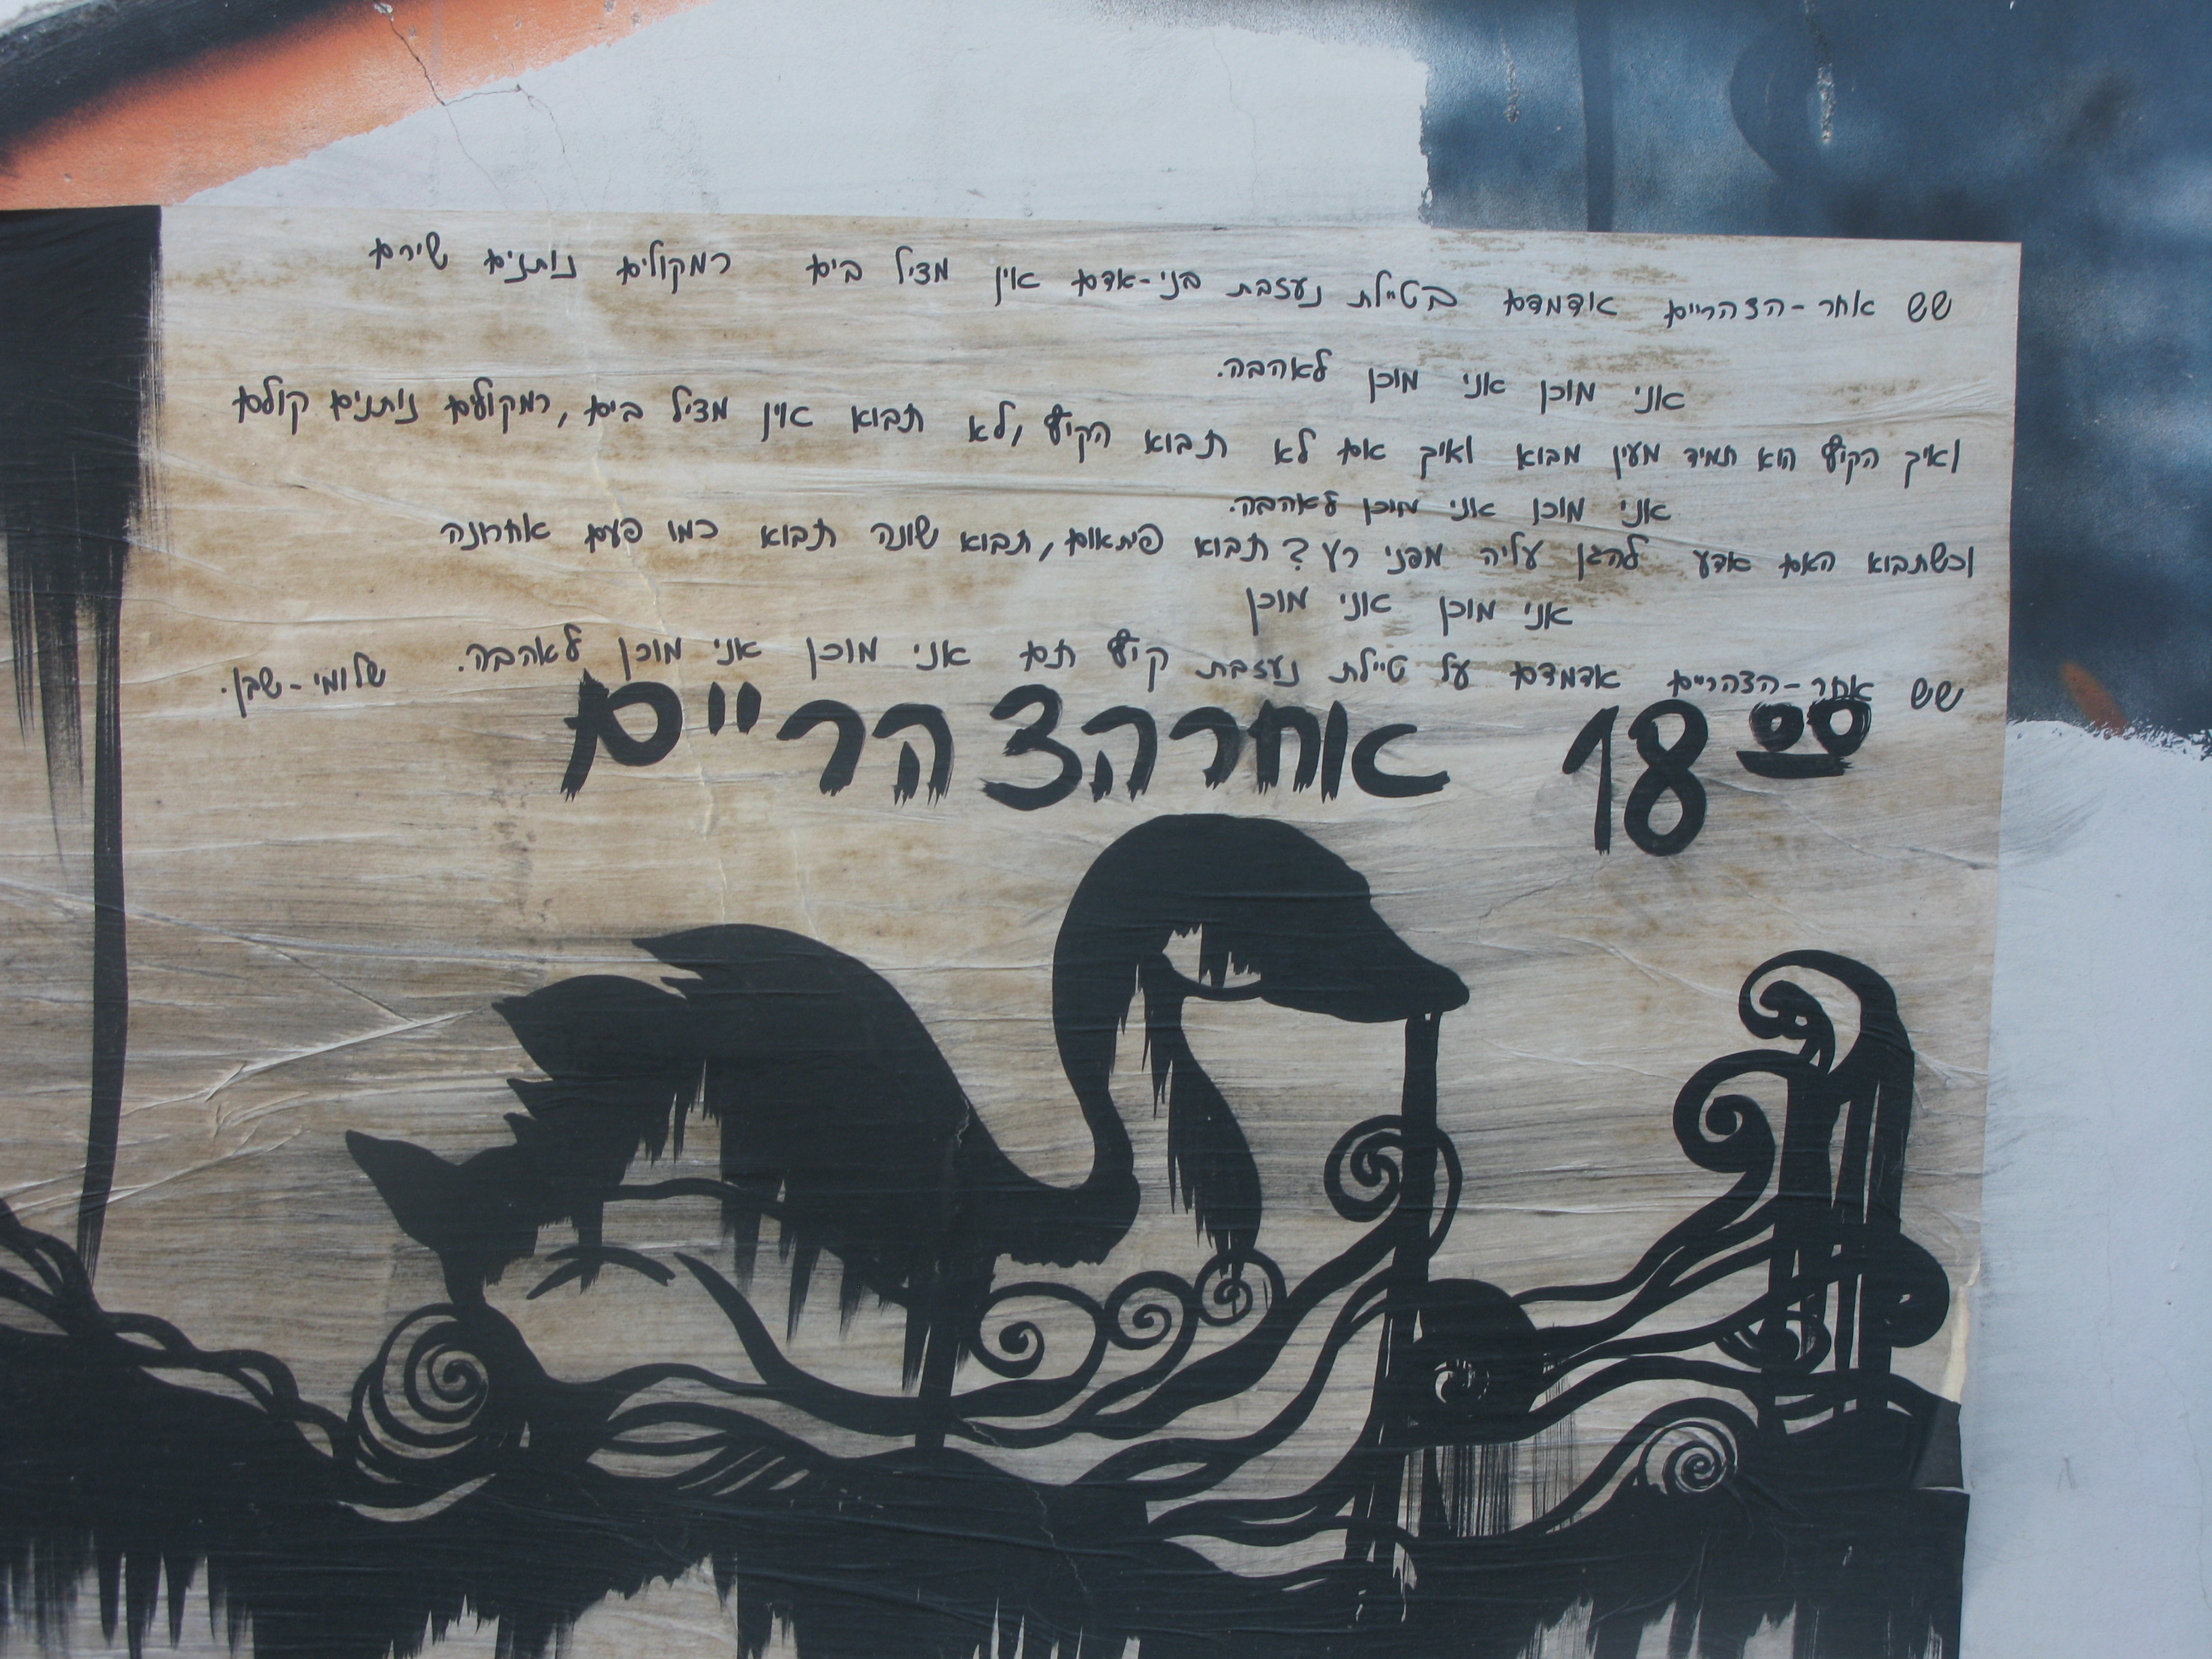 שש אחר-הצהריים אדמדם בטיילת נעזבת בני-אדם אין מציל בים רמקולים נותנים שירם
אני מוכן אני מוכן לאהבה.
ואיך הקיץ הוא תמיד מעין מבוא ואיך אם לא תבוא הקיץ, לא תבוא אין מציל בים, רמקולים נותנים קולם
אני מוכן אני מוכן לאהבה.
וכשתבוא האם אדע להגן עליה מפני רע? תבוא פיתאום, תבוא שונה תבוא כמו פעם אחרונה
אני מוכן אני מוכן
שש אחר-הצהריים אדמדם על טיילת נעזבת קיץ תם אני מוכן אני מוכן לאהבה. שלומי-שבן.
18⁰⁰ אחרהצהריים